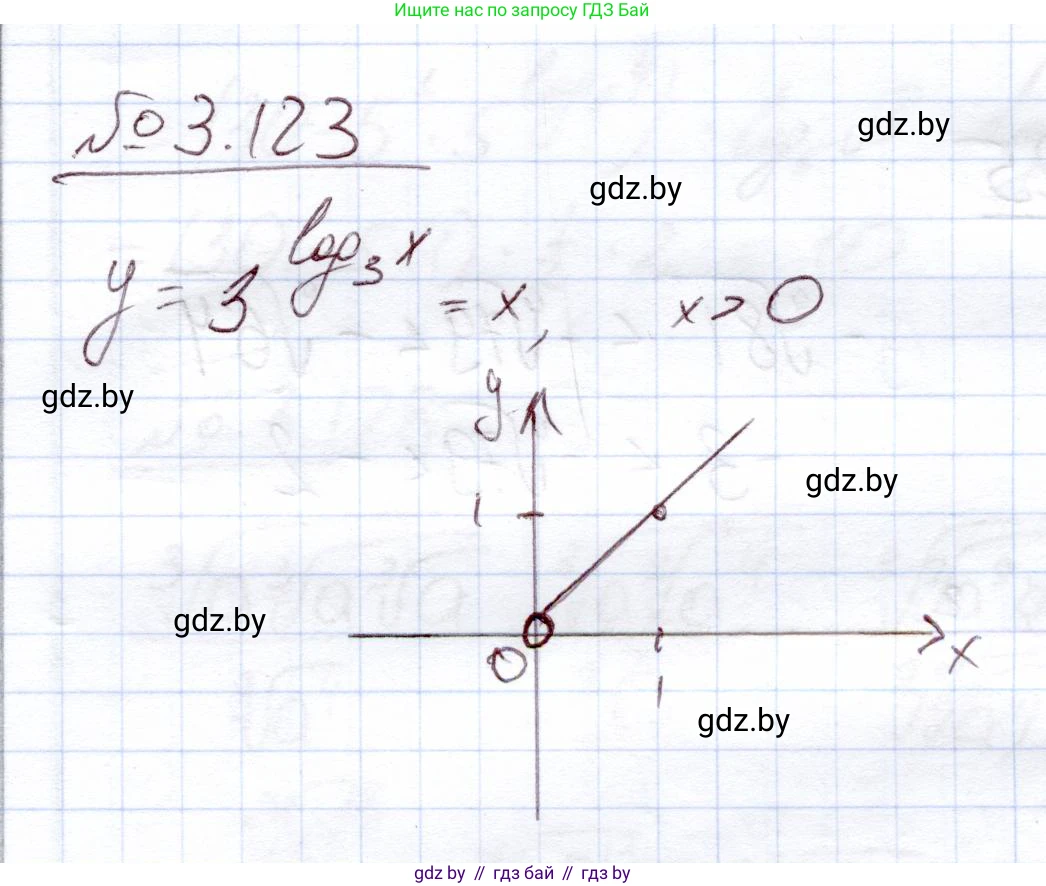 Ищите нас по запросу ГДЗ Бай
№ 3.123
gdz.by
gdz.by
y = 3^{log_3 x} = x, x > 0
gdz.by
y
gdz.by
1
gdz.by
0
x
1
gdz.by
gdz by // гдз бай // гдз by